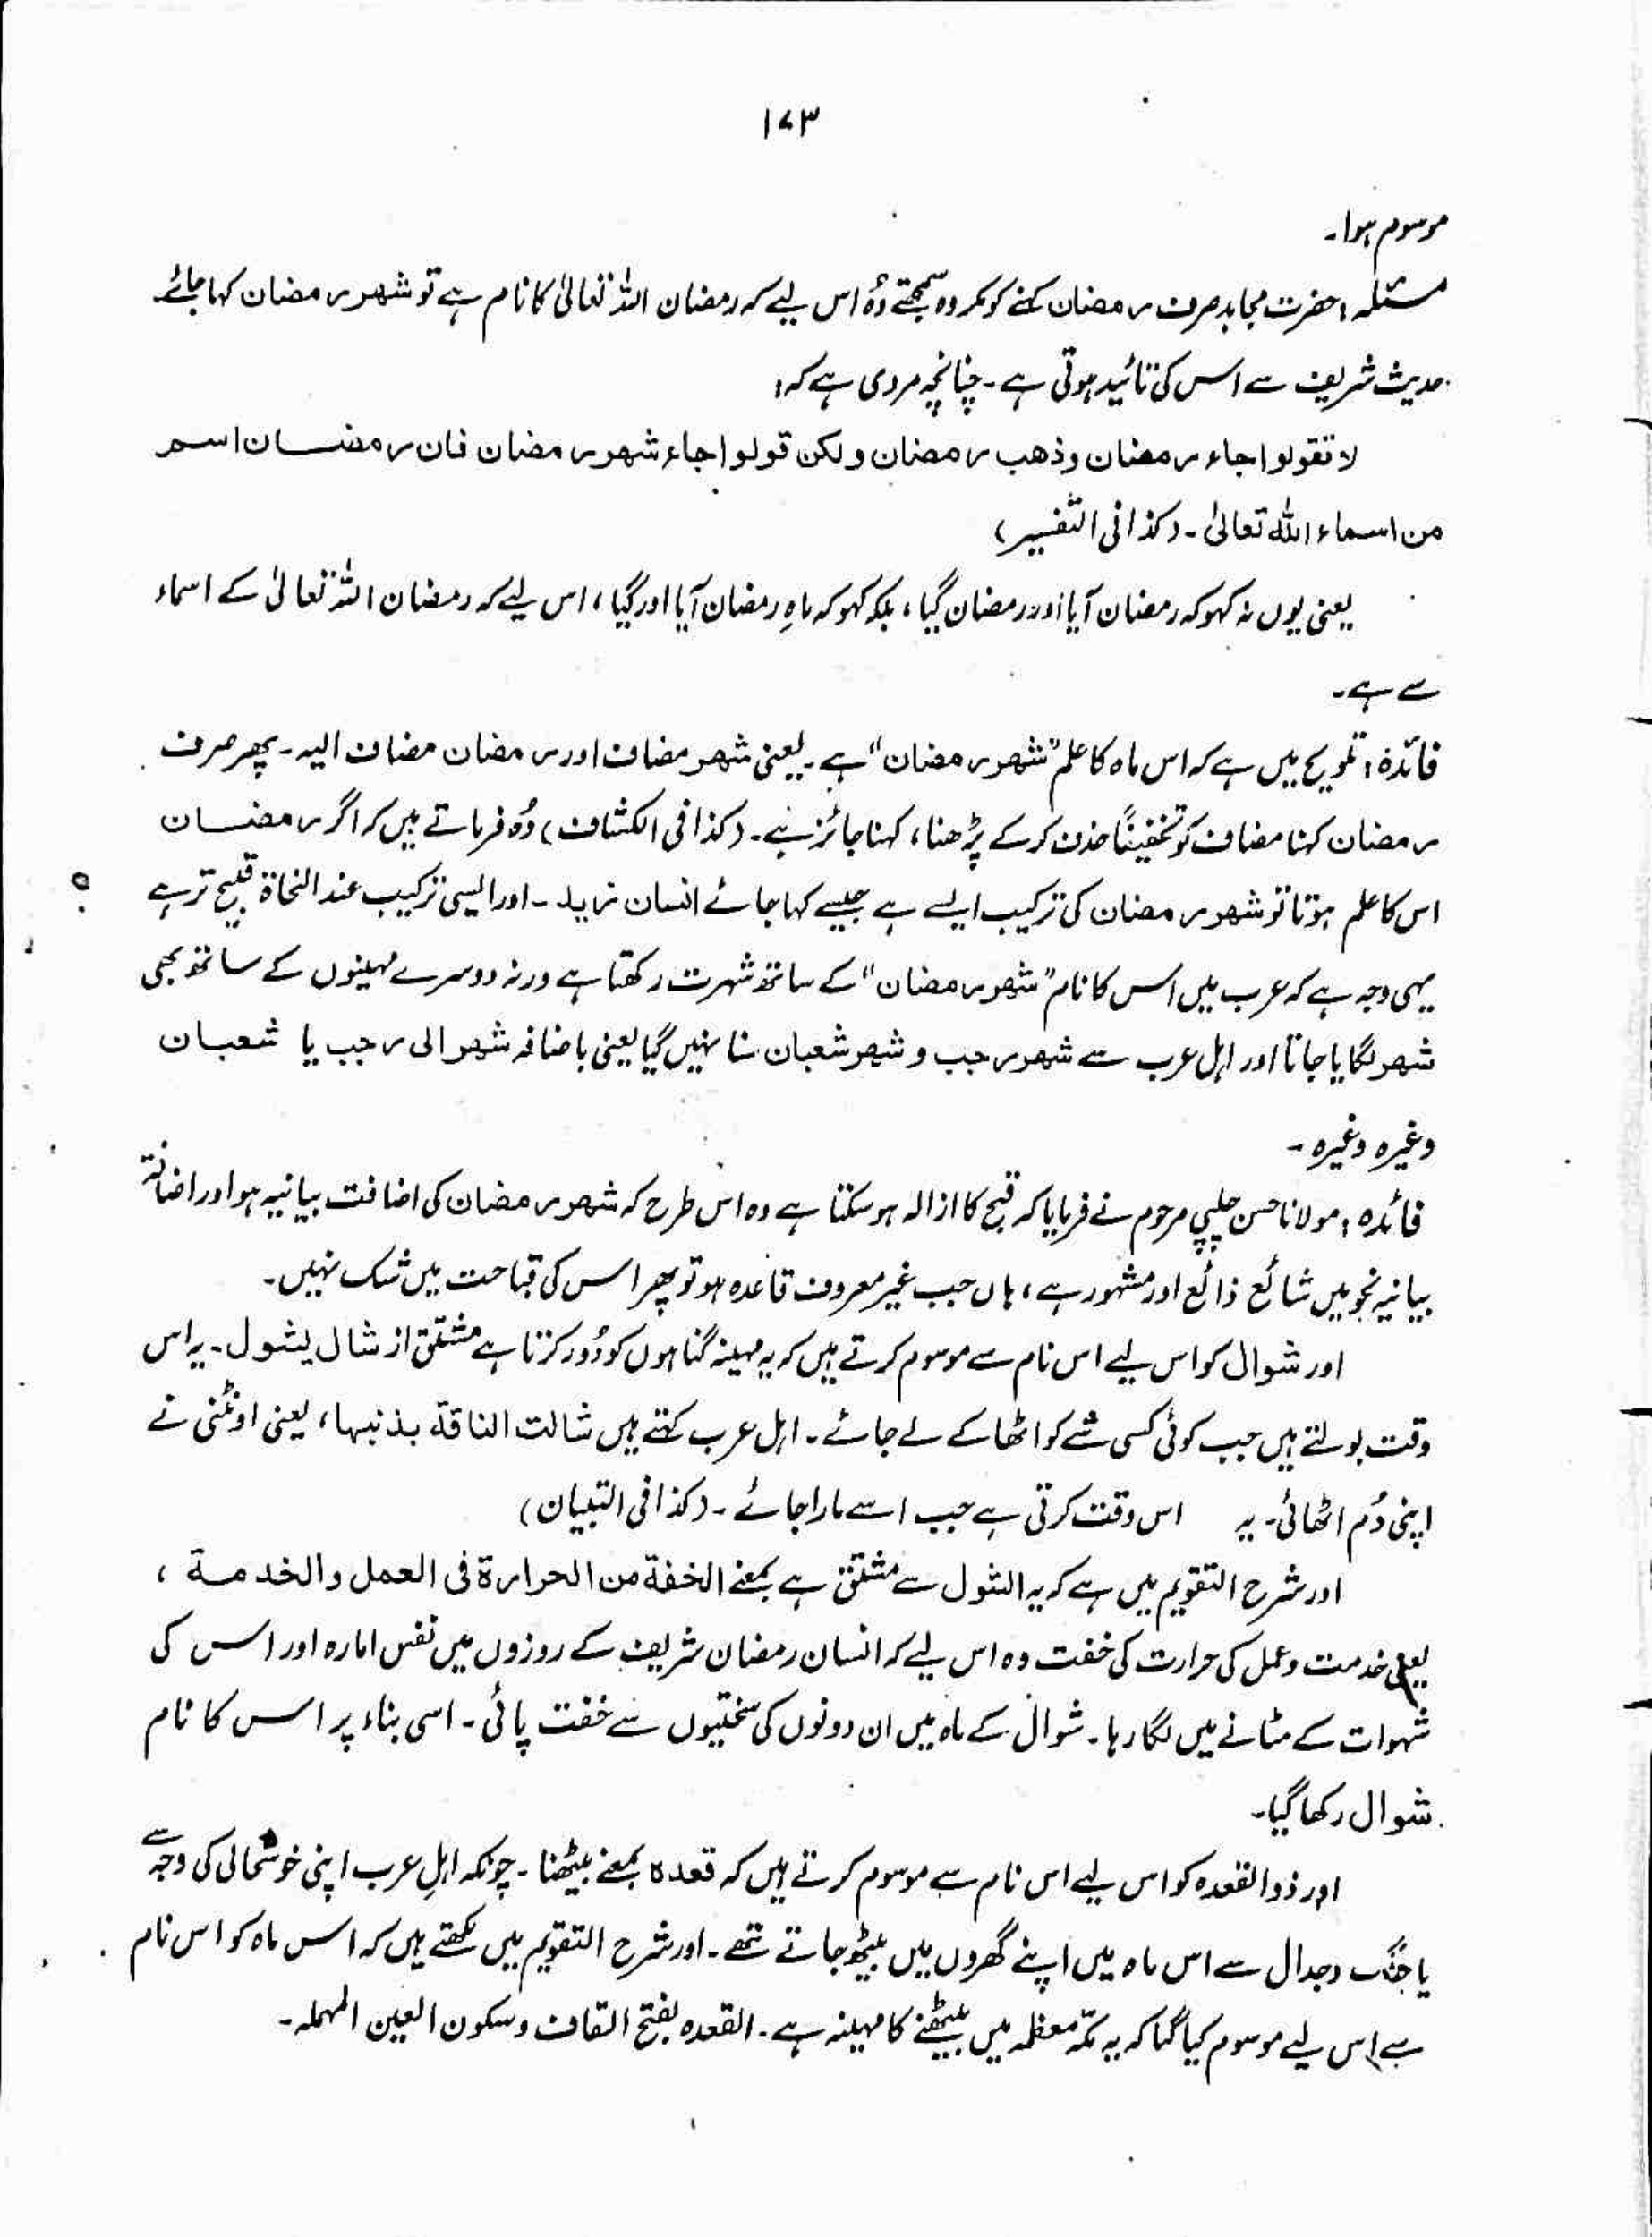 ۱۷۳
موسوم ہوا۔
مسئلہ: حضرت مجاہد صرف رمضان کہنے کو مکروہ سمجھتے وُہ اس لیے کہ رمضان اللہ تعالیٰ کا نام ہے تو شھر رمضان کہا جائے
حدیث شریف سے اس کی تائید ہوتی ہے۔ چنانچہ مروی ہے کہ:
لا تقولوا جاء رمضان وذھب رمضان ولکن قولوا جاء شھر رمضان فان رمضان اسم
من اسماء اللہ تعالیٰ۔ (کذا فی التفسیر)
یعنی یوں نہ کہو کہ رمضان آیا اور رمضان گیا، بلکہ کہو کہ ماہِ رمضان آیا اور گیا، اس لیے کہ رمضان اللہ تعالیٰ کے اسماء
سے ہے۔
فائدہ: تلویح میں ہے کہ اس ماہ کا علم "شھر رمضان" ہے۔ یعنی شھر مضاف اور رمضان مضاف الیہ۔ پھر صرف
رمضان کہنا مضاف کو تخفیفاً حذف کر کے پڑھنا، کہنا جائز ہے۔ (کذا فی الکشاف) وُہ فرماتے ہیں کہ اگر رمضان
اس کا علم ہوتا تو شھر رمضان کی ترکیب ایسے ہے جیسے کہا جائے انسان زید۔ اور ایسی ترکیب عند النحاۃ قبیح تر ہے
یہی وجہ ہے کہ عرب میں اس کا نام "شھر رمضان" کے ساتھ شہرت رکھتا ہے ورنہ دوسرے مہینوں کے ساتھ بھی
شھر لگایا جاتا اور اہل عرب سے شھر رجب و شھر شعبان سنا نہیں گیا یعنی باضافہ شھر الی رجب یا شعبان
وغیرہ وغیرہ۔
فائدہ: مولانا حسن چلپی مرحوم نے فرمایا کہ قبح کا ازالہ ہو سکتا ہے وہ اس طرح کہ شھر رمضان کی اضافت بیانیہ ہو اور اضافۃ
بیانیہ نحو میں شائع ذائع اور مشہور ہے، ہاں جب غیر معروف قاعدہ ہو تو پھر اس کی قباحت میں شک نہیں۔
اور شوال کو اس لیے اس نام سے موسوم کرتے ہیں کہ یہ مہینہ گناہوں کو دُور کرتا ہے مشتق از شال یشول۔ یہ اس
وقت بولتے ہیں جب کوئی کسی شے کو اٹھا کے لے جائے۔ اہل عرب کہتے ہیں شالت الناقۃ بذنبہا، یعنی اونٹنی نے
اپنی دُم اٹھائی۔ یہ اس وقت کرتی ہے جب اسے مارا جائے۔ (کذا فی التبیان)
اور شرح التقویم میں ہے کہ یہ الشول سے مشتق ہے بمعنے الخفۃ من الحرارۃ فی العمل والخدمۃ،
یعنی خدمت وعمل کی حرارت کی خفت وہ اس لیے کہ انسان رمضان شریف کے روزوں میں نفس امارہ اور اس کی
شہوات کے مٹانے میں لگا رہا۔ شوال کے ماہ میں ان دونوں کی سختیوں سے خفت پائی۔ اسی بناء پر اس کا نام
شوال رکھا گیا۔
اور ذوالقعدہ کو اس لیے اس نام سے موسوم کرتے ہیں کہ قعدہ بمعنے بیٹھنا۔ چونکہ اہلِ عرب اپنی خوشحالی کی وجہ سے
یا جنگ وجدال سے اس ماہ میں اپنے گھروں میں بیٹھ جاتے تھے۔ اور شرح التقویم میں لکھتے ہیں کہ اس ماہ کو اس نام
سے اس لیے موسوم کیا گیا کہ یہ مکّہ معظمہ میں بیٹھنے کا مہینہ ہے۔ القعدہ بفتح القاف وسکون العین المہملہ۔